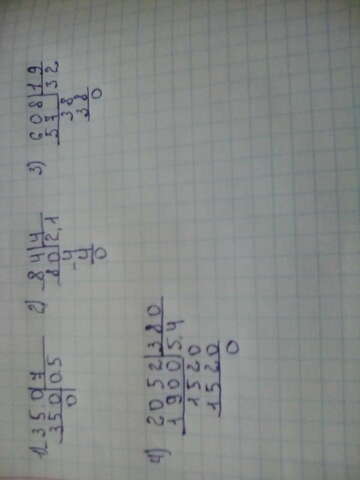 1 3 5 0 7
3 5 0 0.5
0
2) 8 4 4
8 0 2,1
- 4
4
0
3) 6 0 8 1 9
5 7 3 2
3 8
3 8
0
4) 2 0 5 2 3 8 0
1 9 0 0 5.4
1 5 2 0
1 5 2 0
0